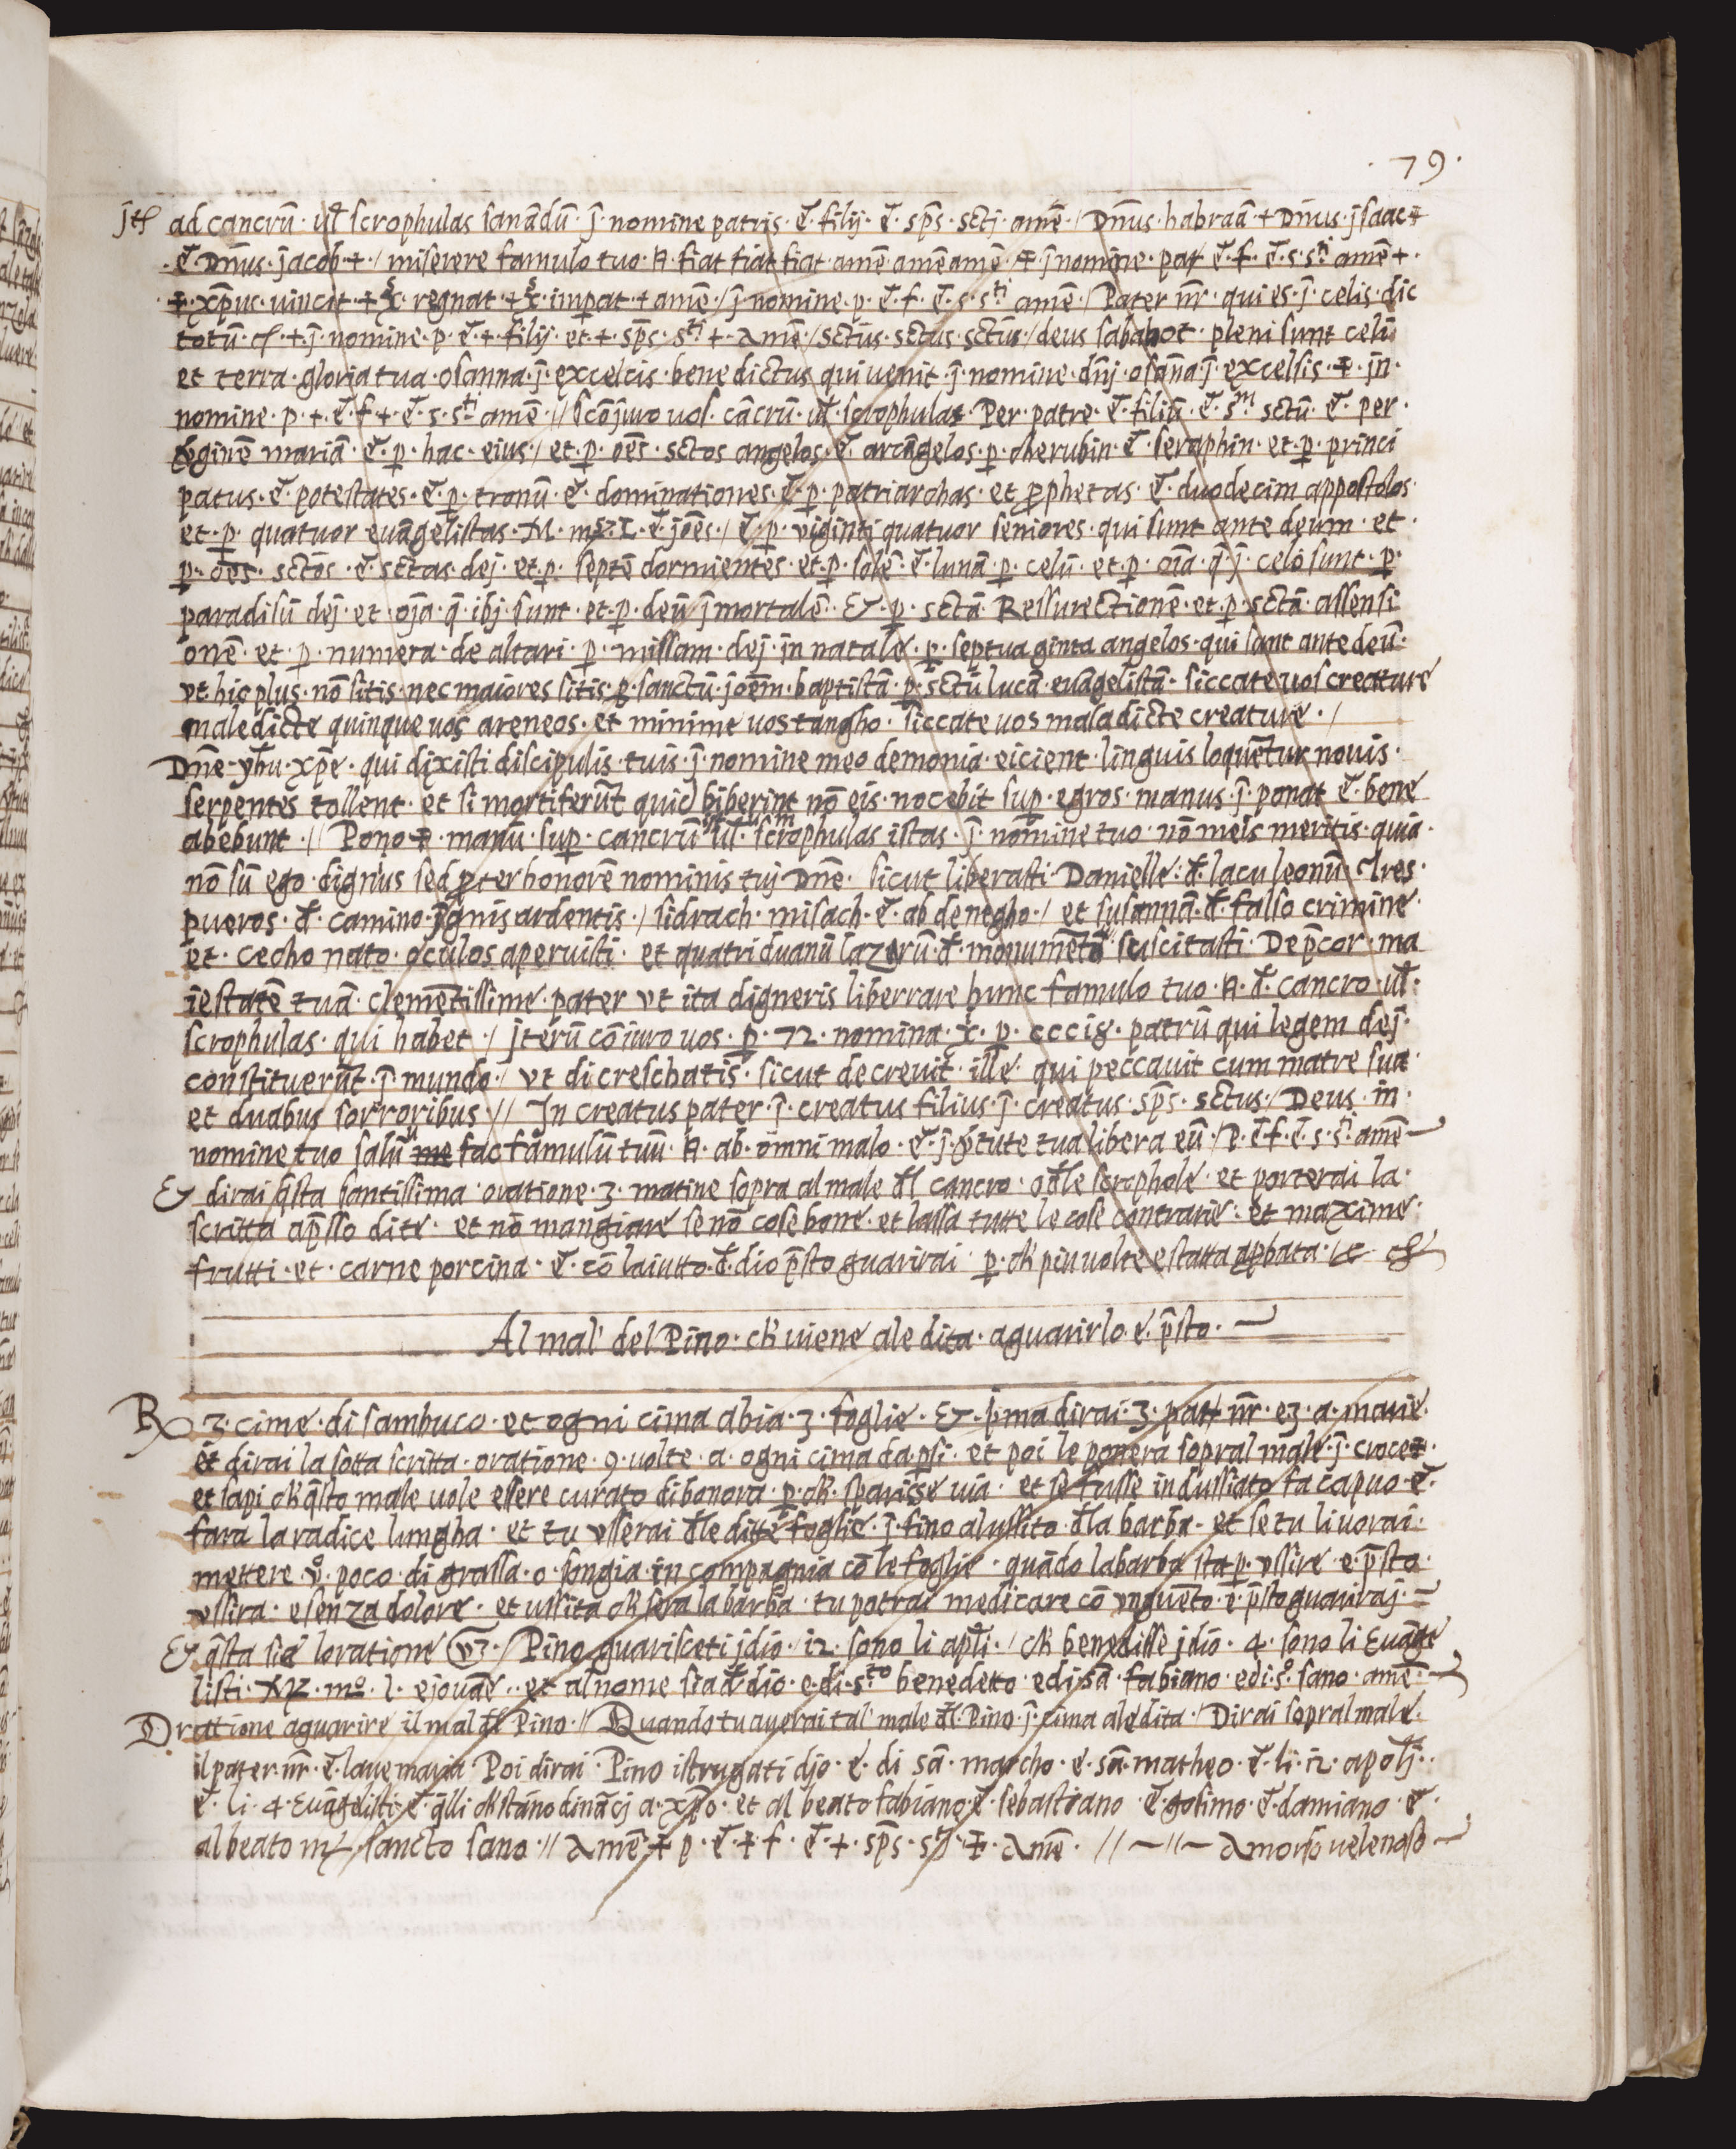 ·79·
Jtē ad cancrū· ul̄ scrophulas sanādū· j̄ nomine patris· ē· filij· ē· sp̄s· sctj· amē·/ Dn̄us· habraā + Dn̄us· jsaac +
·ē· Dn̄us· jacob· + ·/ miserere famulo tuo· N· fiat fiat fiat· amē amē amē· + j̄ nomine· pat̄ ē· f· ē· s· sti· amē + ·
+· xp̄us· uincit· + x̄s· regnat· + x̄s· imp̱at· + amē·/ j̄ nomine· p· ē· f· ē· s· sti· amē·/ Pater nr̄· qui es· j̄· celis· dic
totū· + j̄ nomine· p· ē· + filij· et· + sp̄s· sti· + · amē·/ sctūs· sctus· sctūs·/ deus sabahot· pleni sunt celi
et terra· gloria tua· osanna· j̄· excelcis· benedictus qui uenit· j̄ nomine· dn̄j· osāna· j̄· excelsis· + · jn·
nomine· p· + · ē· f· + · ē· s· sti· amē·// Scōjuro uos· cācrū· ul̄· scrophulas· Per patre· ē· filiū· ē· sm· sctū· ē· per·
reginē mariā· ē· p̱· hac· eius·/ et· p̱· oēs· sctos angelos· ē· arcāgelos· p̱· cherubin· ē· seraphin· et· p̱· princi
patus· ē· potestates· ē· p̱· tronū· ē· dominationes· ē· p̱· patriarchas· et prophetas· ē· duodecim appostolos·
et· p̱· quatuor euāgelistas· M· mz· L· ē· joēs·/ ē· p̱· viginti quatuor seniores· qui sunt ante deum· et·
p̱· oēs· sctōs· ē· sctas· dej· et· p̱· septē dormientēs· et· p̱· solē· ē· lunā· p̱· celū· et· p̱· oīa· q̄· j̄· celo sunt· p̱·
paradisū dej· et· oja· q̄· ibj· sunt· et· p̱· deū j̄mortalē· Et· p̱· sctā· Ressurectionē· et· p̱· sctā· assensi
onē· et· p̱· numera· de altari· p̱· missam· dej· in natale· p̱· septua ginta angelos· qui sunt ante deū·
vt· hic plus· nō sitis· nec maiores sitis· p̱· sanctū· joēm· baptistā· p̱· sctū lucā· euāgelistā· siccate uos creature
maledicte quinque uos areneos· et minime uos tangho· siccate uos maladicte creature·/
Dn̄e· yhu· xp̄e· qui dixisti discipulis· tuis· j̄· nomine meo demonia· eicient· linguis loquētur nouis·
serpentes tollent· et si mortiferūt quid biberint nō eis· nocebit sup̱· egros· manus· j̄· ponat ē· bene
abebunt·// Pono + · manū· sup̱· cancrū istū ul̄· scrophulas istas· j̄· nomine tuo· nō meis meritis· quia·
nō sū ego· dignus sed propter honorē nominis tuj Dn̄e· sicut liberasti· Danielle· d̄· lacu leonū· tres·
pueros· d̄· camino· jgnis ardentis·/ sidrach· misach· ē· abdenegho·/ et susannā· d̄· falso crimine·
et· cecho nato· oculos aperuisti· et quatriduanū lazarū· d̄· monumēto suscitasti· Dep̄cor· ma
iestatē tuā· clemētissime· pater vt ita digneris liberrare hunc famulo tuo· N· d̄· cancro· ul̄·
scrophulas· qui habet·/ jterū cōiuro uos· p̱· 72· nomina· x̄· p̱· ccci8· patrū qui legem dej·
constituerūt· j̄· mundo·/ vt dicreschatis· sicut decreuit· ille· qui peccauit cum matre sua·
et duabus sorroribus·// In creatus pater· j̄· creatus filius· j̄· creatus· sp̄s· sctus·/ Deus· in·
nomine tuo saluū me fac famulū tuū· N· ab· omni malo· ē· j̄· v̄tute tua libera eū·/ P· ē· f· ē· s· sti· amē
Et dirai q̄sta santissima· oratione· 3· matine sopra al male d̄l cancro· o d̄le scrophole· et porterai la·
scritta ap̄sso di te· et nō mangiare se nō cose bone· et lassa tutte le cose contrarie· et maxime·
frutti· et· carne porcina· ē· cō laiutto· d̄· dio p̄sto guarirai· p̱· ch piu uolte e statta ap̱bata·
Al mal del Pino· ch uiene ale dita· a guarirlo ē· p̄sto·
Rx 3· cime· di sambuco· et ogni cima abia· 3· foglie· Et· p̄ma dirai· 3· patr nr̄· e 3· a· marie·
et dirai la sotta scritta· oratione· 9· uolte· a· ogni cima da p̱ si· et poi le ponera sopral male· j̄· croce +·
et sapi ch q̄sto male uole essere curato di bonora· p̱· ch· sparisse uia· et se fusse indussiato fa capuo· ē·
fara la radice lungha· et tu vsserai d̄le ditte foglie· j̄· fino al ussito· d̄la barba· et se tu li uorai·
mettere vo· poco· di grassa· o songia· in compagnia cō le foglie· quādo la barba sta p̱· vssire· e p̄sto·
vssira· e senza dolore· et ussita ch sera la barba· tu potrai medicare cō vnguēto· ē· p̄sto guariraj·
Et q̄sta sie loratione· Pino guarisceti jdio· 12· sono li apl̄i·/ ch benedisse jdio· 4· sono li Euāge
listi· Mz· mo· l· e jouāe· et al nome sia d̄ dio· e· di· sto benedetto· e di sā· fabiano· e di· so· sano· amē·
Oratione a guarire il mal d̄l Pino·// Quando tu auerai tal male d̄l· Pino· j̄· cima ale dita·/ Dirai sopral male·
il pater· nr̄· ē· laue maria· Poi dirai· Pino istrugati dio· e· di sā· marcho· e· sā· matheo· ē· li· 12· apolj·
ē· li· 4· Euāgelisti· ē· q̄lli ch stāno dināci a· xp̄o· et al beato fabiano· ē· sebastiano· ē· gosimo· ē· damiano· ē·
al beato mz· sancto sano·// amē· + p· ē· + f· ē· + · sp̄s· sti· + · amē·// ~ " ~ amorso uelenoso